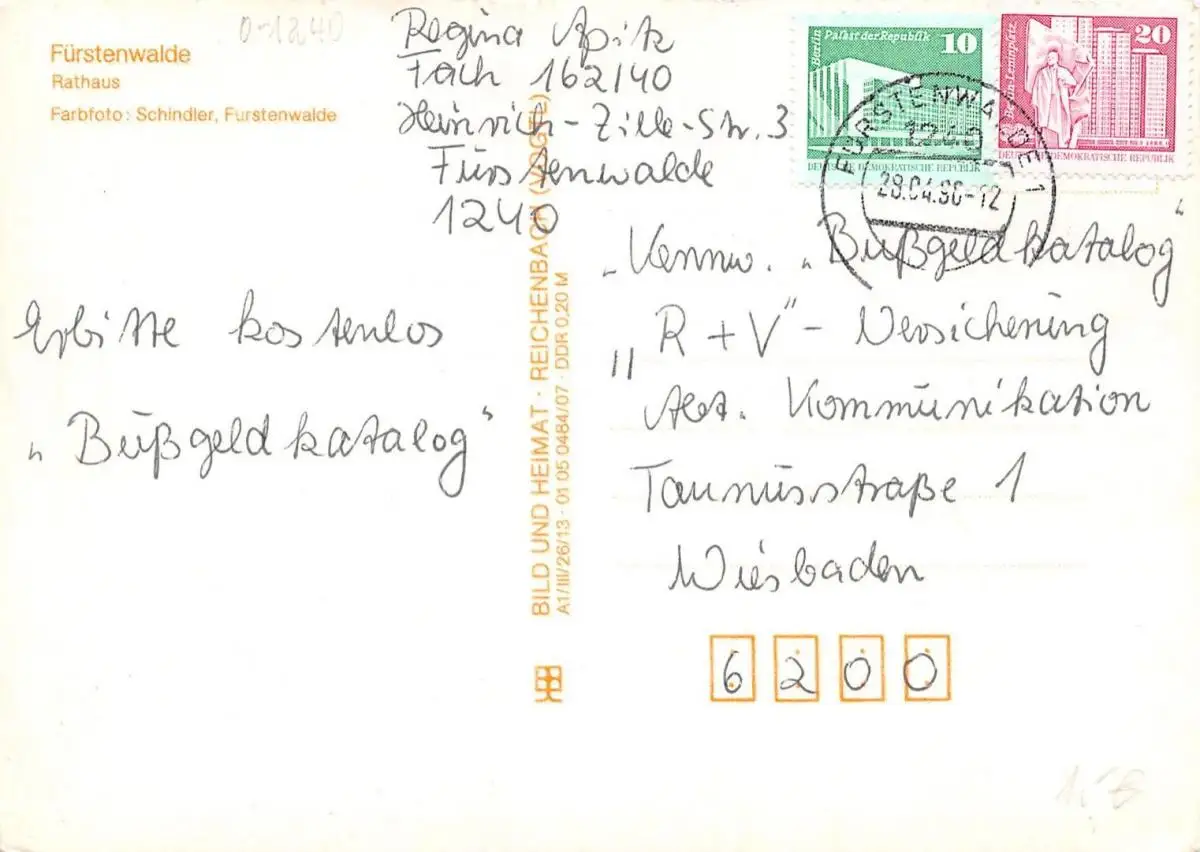 Fürstenwalde
Rathaus
Farbfoto: Schindler, Furstenwalde
0-1240
Regina Apitz
Fach 162/40
Heinrich-Zille-Str. 3
Fürstenwalde
1240
Erbitte kostenlos
„Bußgeldkatalog“
BILD UND HEIMAT · REICHENBACH (VOGTL)
A1/III/26/13 · 01 05 0484/07 · DDR 0,20 M
Berlin Palast der Republik 10
DEUTSCHE DEMOKRATISCHE REPUBLIK
Berlin-Leninplatz 20
DEUTSCHE DEMOKRATISCHE REPUBLIK
FÜRSTENWALDE 1
1240
28.04.90-12
„Kennw. „Bußgeldkatalog“
„R+V“-Versicherung
Abt. Kommunikation
Taunusstraße 1
Wiesbaden
6200